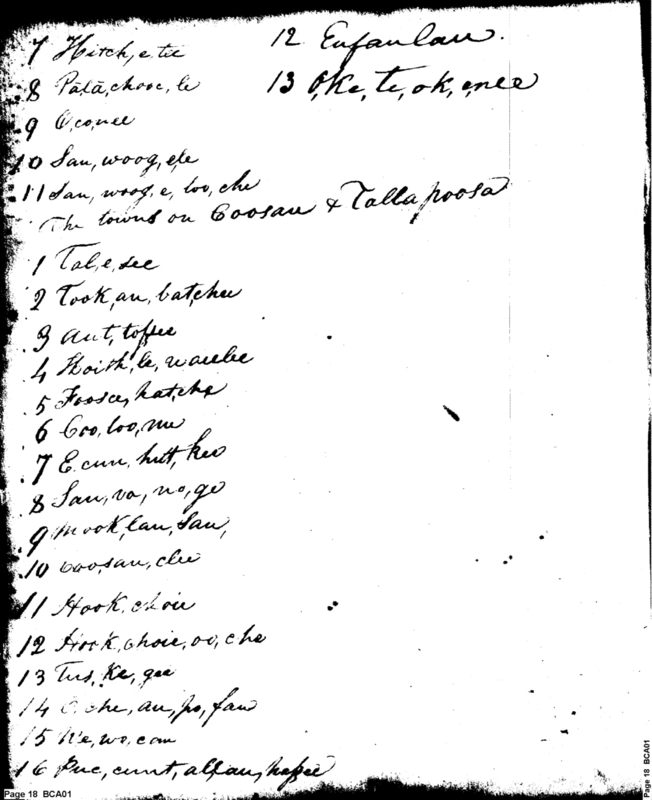 7 Hitch,e,tee
12 Eufaulau.
8 Palā,chooc,le
13 O,Ke,te,ok,enee
9 O,co,nee
10 Sau,woog,ele
11 Sau,woog,e,loo,che
The towns on Coosau & Tallapoosa
1 Tal,e,see
2 Took,au,batchee
3 Aut,tossee
4 Hoith,le,waulee
5 Foosce,hatche
6 Coo,loo,me
7 E,cun,hutt,kee
8 Sau,va,no,ge
9 Mook,lau,sau,
10 Coo,sau,dee
11 Hook,choie
12 Hook,choie,oo,che
13 Tus,Ke,gee
14 O,che,au,po,fau
15 We,wo,cau
16 Puc,cunt,allau,hassee
Page 18 BCA01
Page 18 BCA01